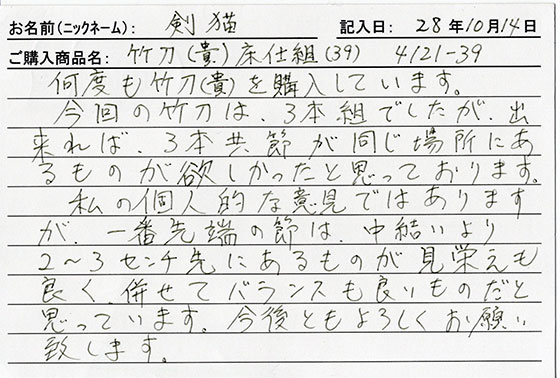 お名前(ニックネーム): 剣猫 記入日: 28年10月14日
ご購入商品名: 竹刀(貴)床仕組(39) 4121-39
何度も竹刀(貴)を購入しています。
今回の竹刀は、3本組でしたが、出
来れば、3本共節が同じ場所にあ
るものが欲しかったと思っております。
私の個人的な意見ではあります
が、一番先端の節は、中結いより
2〜3センチ先にあるものが見栄えも
良く、併せてバランスも良いものだと
思っています。今後ともよろしくお願い
致します。